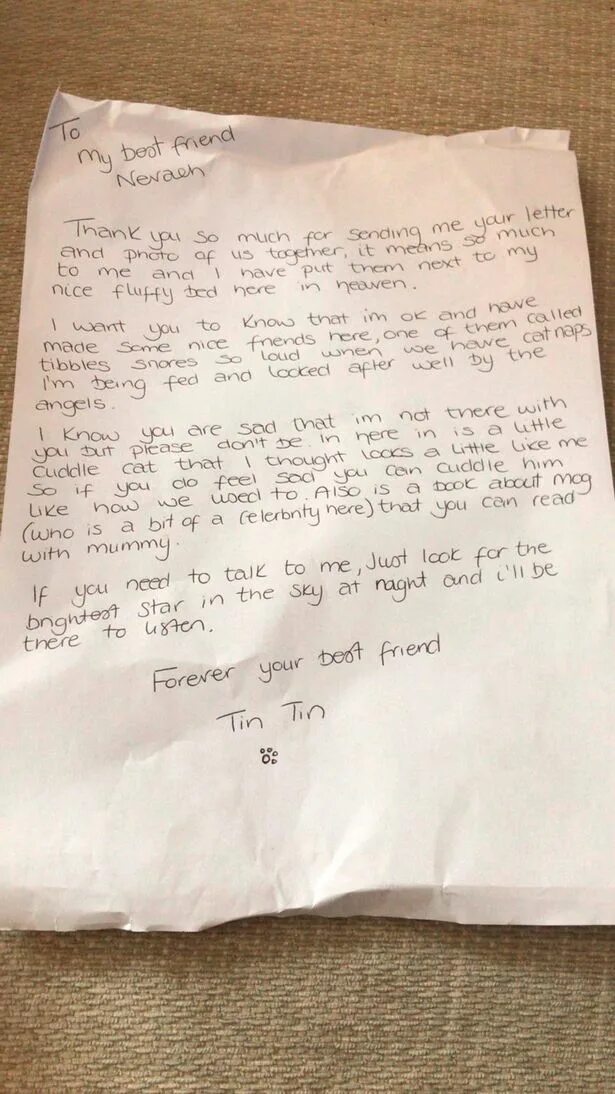 To
My best friend
Nevaeh
Thank you so much for sending me your letter
and photo of us together, it means so much
to me and I have put them next to my
nice fluffy bed here in heaven.
I want you to know that im ok and have
made some nice friends here, one of them called
tibbles snores so loud when we have catnaps
I'm being fed and looked after well by the
angels.
I know you are sad that im not there with
you but please don't be. In here in is a little
cuddle cat that I thought looks a little like me
so if you do feel sad you can cuddle him
like how we used to. Also is a book about mog
(who is a bit of a celerbrity here) that you can read
with mummy.
If you need to talk to me, Just look for the
brightest star in the sky at night and i'll be
there to listen.
Forever your best friend
Tin Tin